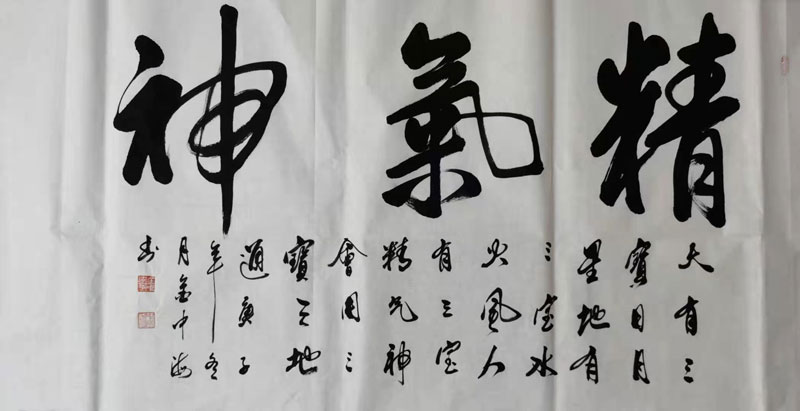 精氣神
天有三
寶日月
星地有
三宝水
火風人
有三宝
精气神
會用三
寶天地
通庚子
年冬
月金中海
书